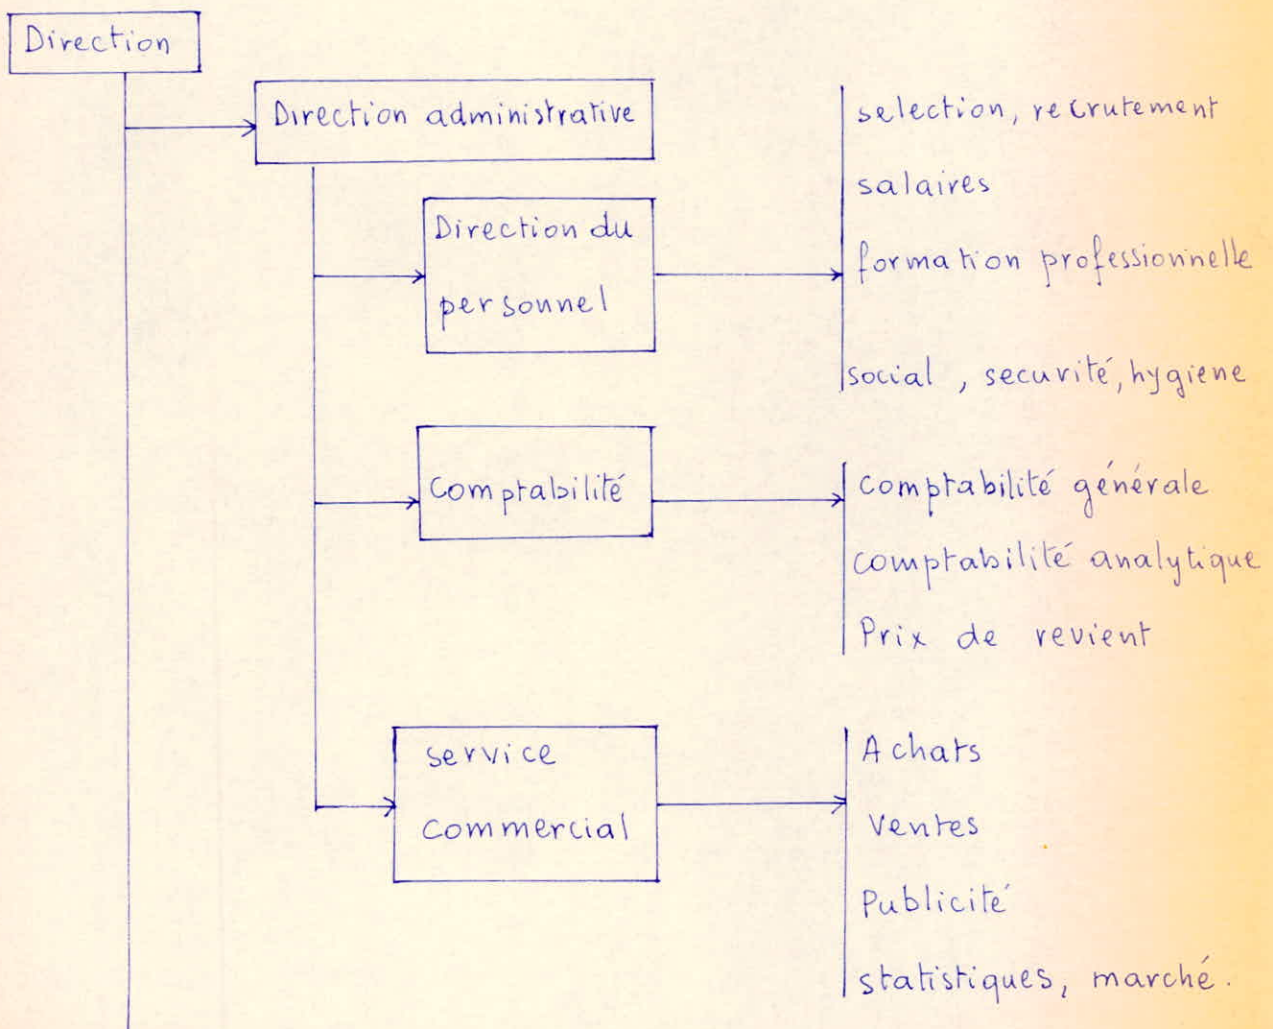 Direction
Direction administrative
selection, recrutement
salaires
Direction du
personnel
formation professionnelle
social, securité, hygiene
Comptabilité
comptabilité générale
comptabilité analytique
Prix de revient
service
commercial
Achats
Ventes
Publicité
statistiques, marché.